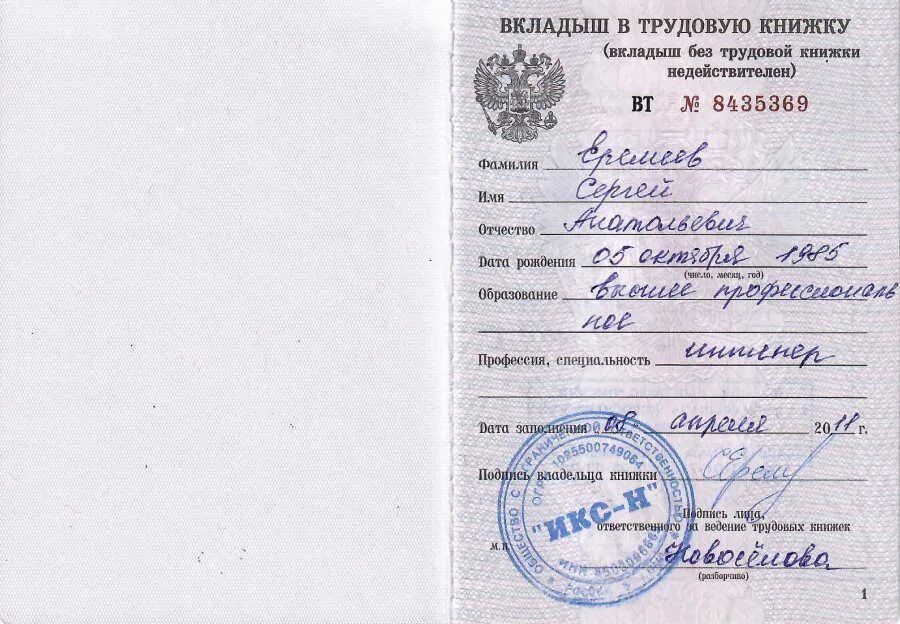 ВКЛАДЫШ В ТРУДОВУЮ КНИЖКУ
(вкладыш без трудовой книжки
недействителен)
ВТ № 8435369
Фамилия Еремеев
Имя Сергей
Отчество Анатольевич
Дата рождения 05 октября 1985
(число, месяц, год)
Образование высшее профессиональ
ное
Профессия, специальность инженер
Дата заполнения „08" апреля 2011 г.
Подпись владельца книжки СЕрем
Подпись лица,
ответственного за ведение трудовых книжек
м.п. Новосёлова
(разборчиво)
ОБЩЕСТВО С ОГРАНИЧЕННОЙ ОТВЕТСТВЕННОСТЬЮ
ОГРН 1025500749084
"ИКС-Н"
ИНН
1